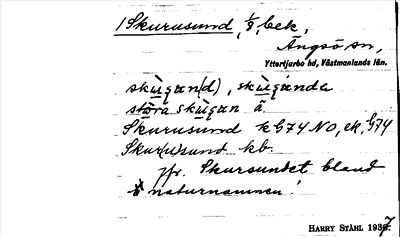 1 Skurusund, 1/8, bek,
Ängsö sn,
Yttertjurbo hd, Västmanlands län.
skùgan(d), skùganda
stòra skùgan å
Skurusund k G74 NO, ek, G74
Skur(u)sund kb.
jfr. Skursundet bland
naturnamnen!
HARRY STÅHL 1937